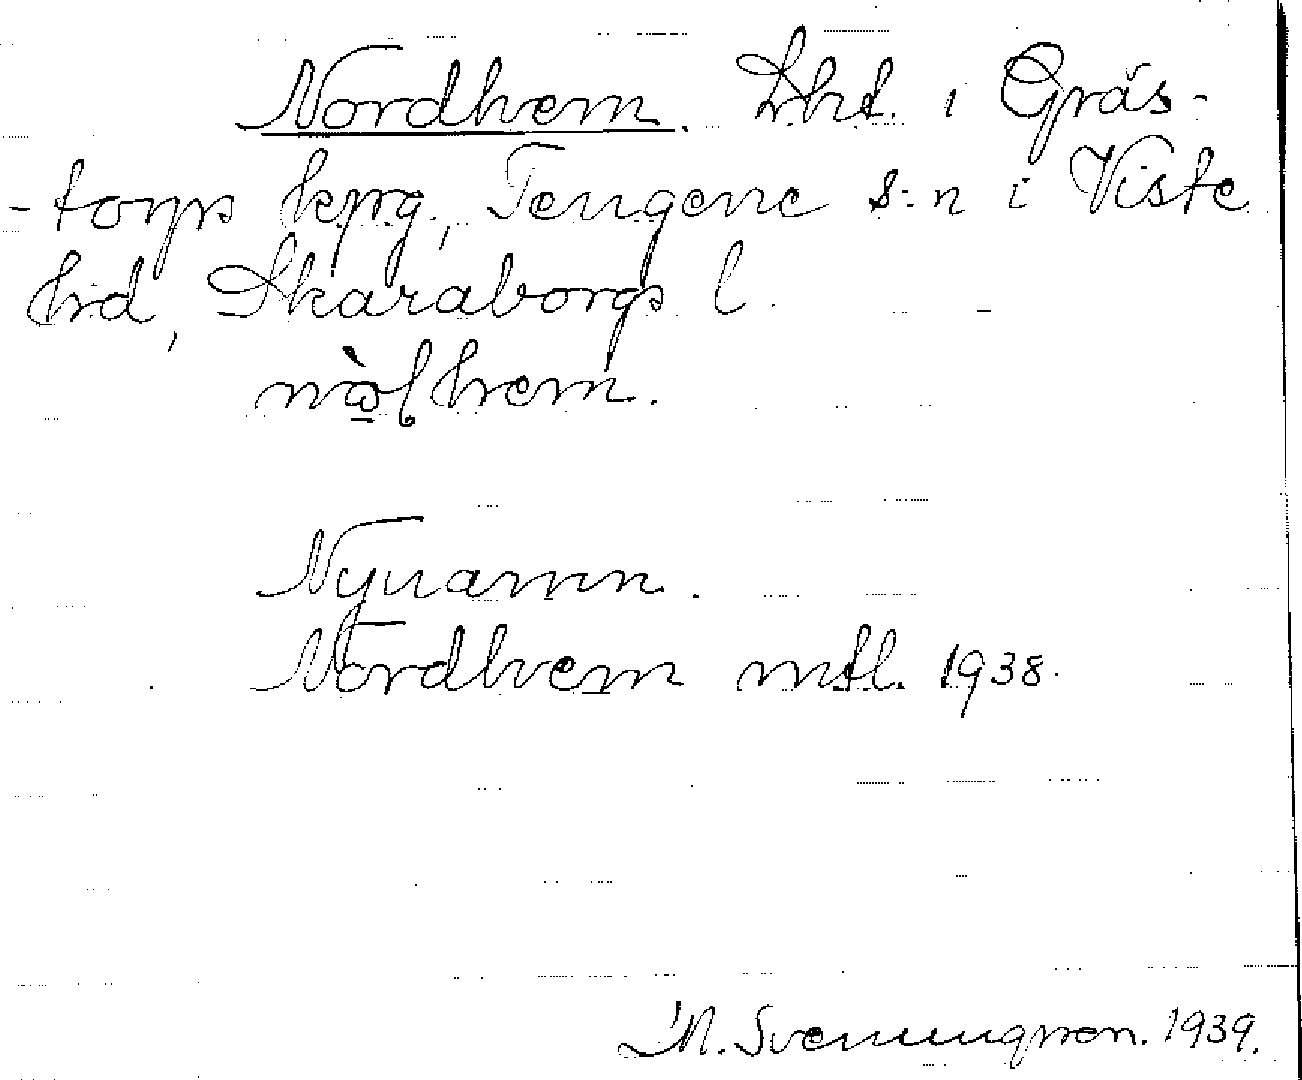 Nordhem. Lht. i Gräs-
-torps kpg, Tengene s:n i Viste
hd, Skaraborgs l.
Nynamn.
Nordhem mtl. 1938.
M. Svenungsson. 1939.